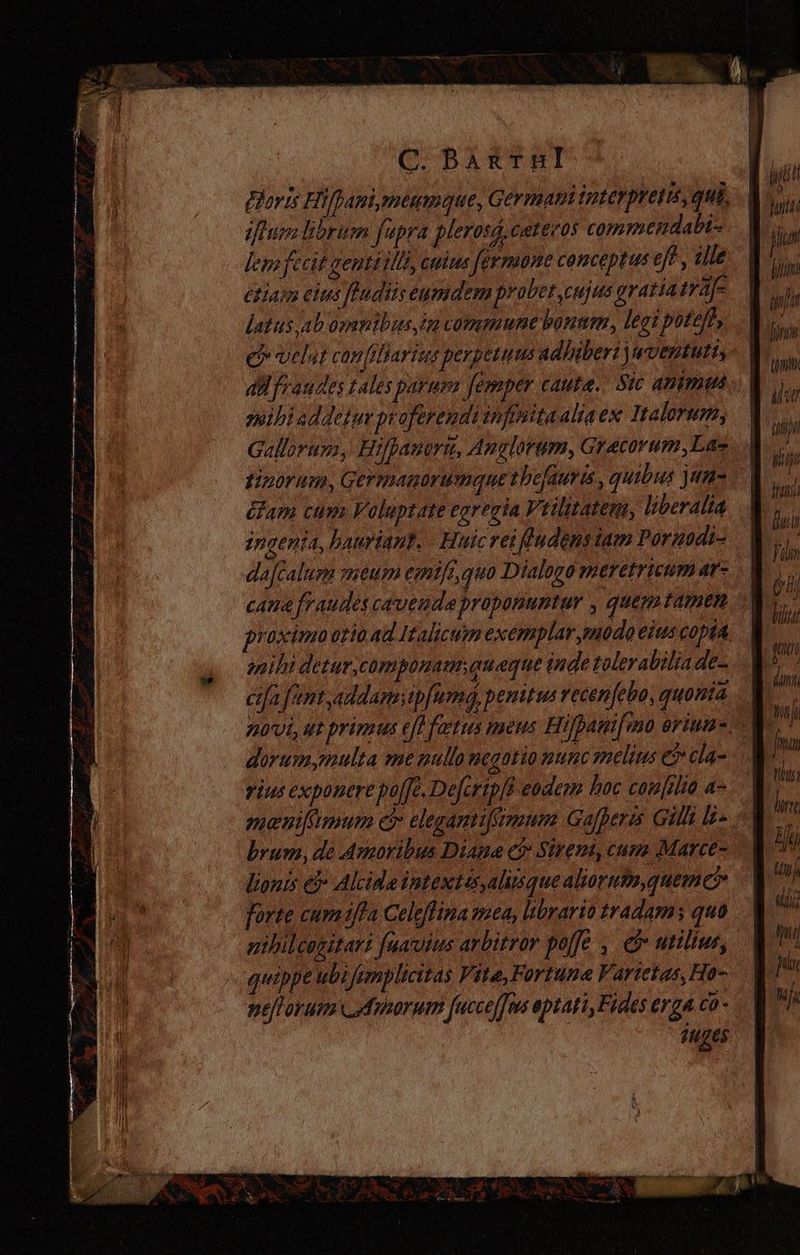 C. BARTHI
ctoris Hiſpani, meumque, Germani interpretis, qui,
iſtum librum ſupra plerosq; cæteros commendabi-
lem fecit genti illi, cuius ſermone conceptus eſt, ille
etiam eius ſtudiis eumdem probet, cujus gratia trāſ-
latus, ab omnibus, in commune bonum, legi poteſt,
& velut conſiliarius perpetuus adhiberi juventuti,
ad fraudes tales parum ſemper cauta. Sic animus
mihi addetur proferendi infinita alia ex Italorum,
Gallorum, Hiſpanorū, Anglorum, Græcorum, La-
tinorum, Germanorumque theſauris, quibus jun-
ctam cum Voluptate egregia Vtilitatem, liberalia
ingenia, hauriant. Huic rei ſtudens iam Pornodi-
daſcalum meum emiſi, quo Dialogo meretricum ar-
canæ fraudes cavendæ proponuntur, quem tamen
proximo otio ad Italicum exemplar, modo eius copia
mihi detur, componam; quæque inde tolerabilia de-
ciſa ſunt, addam; ipſumq; penitus recenſebo, quonia
novi, ut primus eſt fœtus meus Hiſpaniſmo oriun-
dorum, multa me nullo negotio nunc melius & cla-
rius exponere poſſe. Deſcripſi eodem hoc conſilio a-
mœniſſimum & elegantiſſimum Gaſperis Gilli li-
brum, de Amoribus Dianæ & Sireni, cum Marce-
lionis & Alcidæ intextis, aliisque aliorum, quem &
forte cum iſta Celeſtina mea, librario tradam; quo
nihil cogitari ſuavius arbitror poſſe, & utilius,
quippe ubi ſimplicitas Vitæ, Fortunæ Varietas, Ho-
neſtorum Amorum ſucceſſus optati, Fides erga co-
iuges